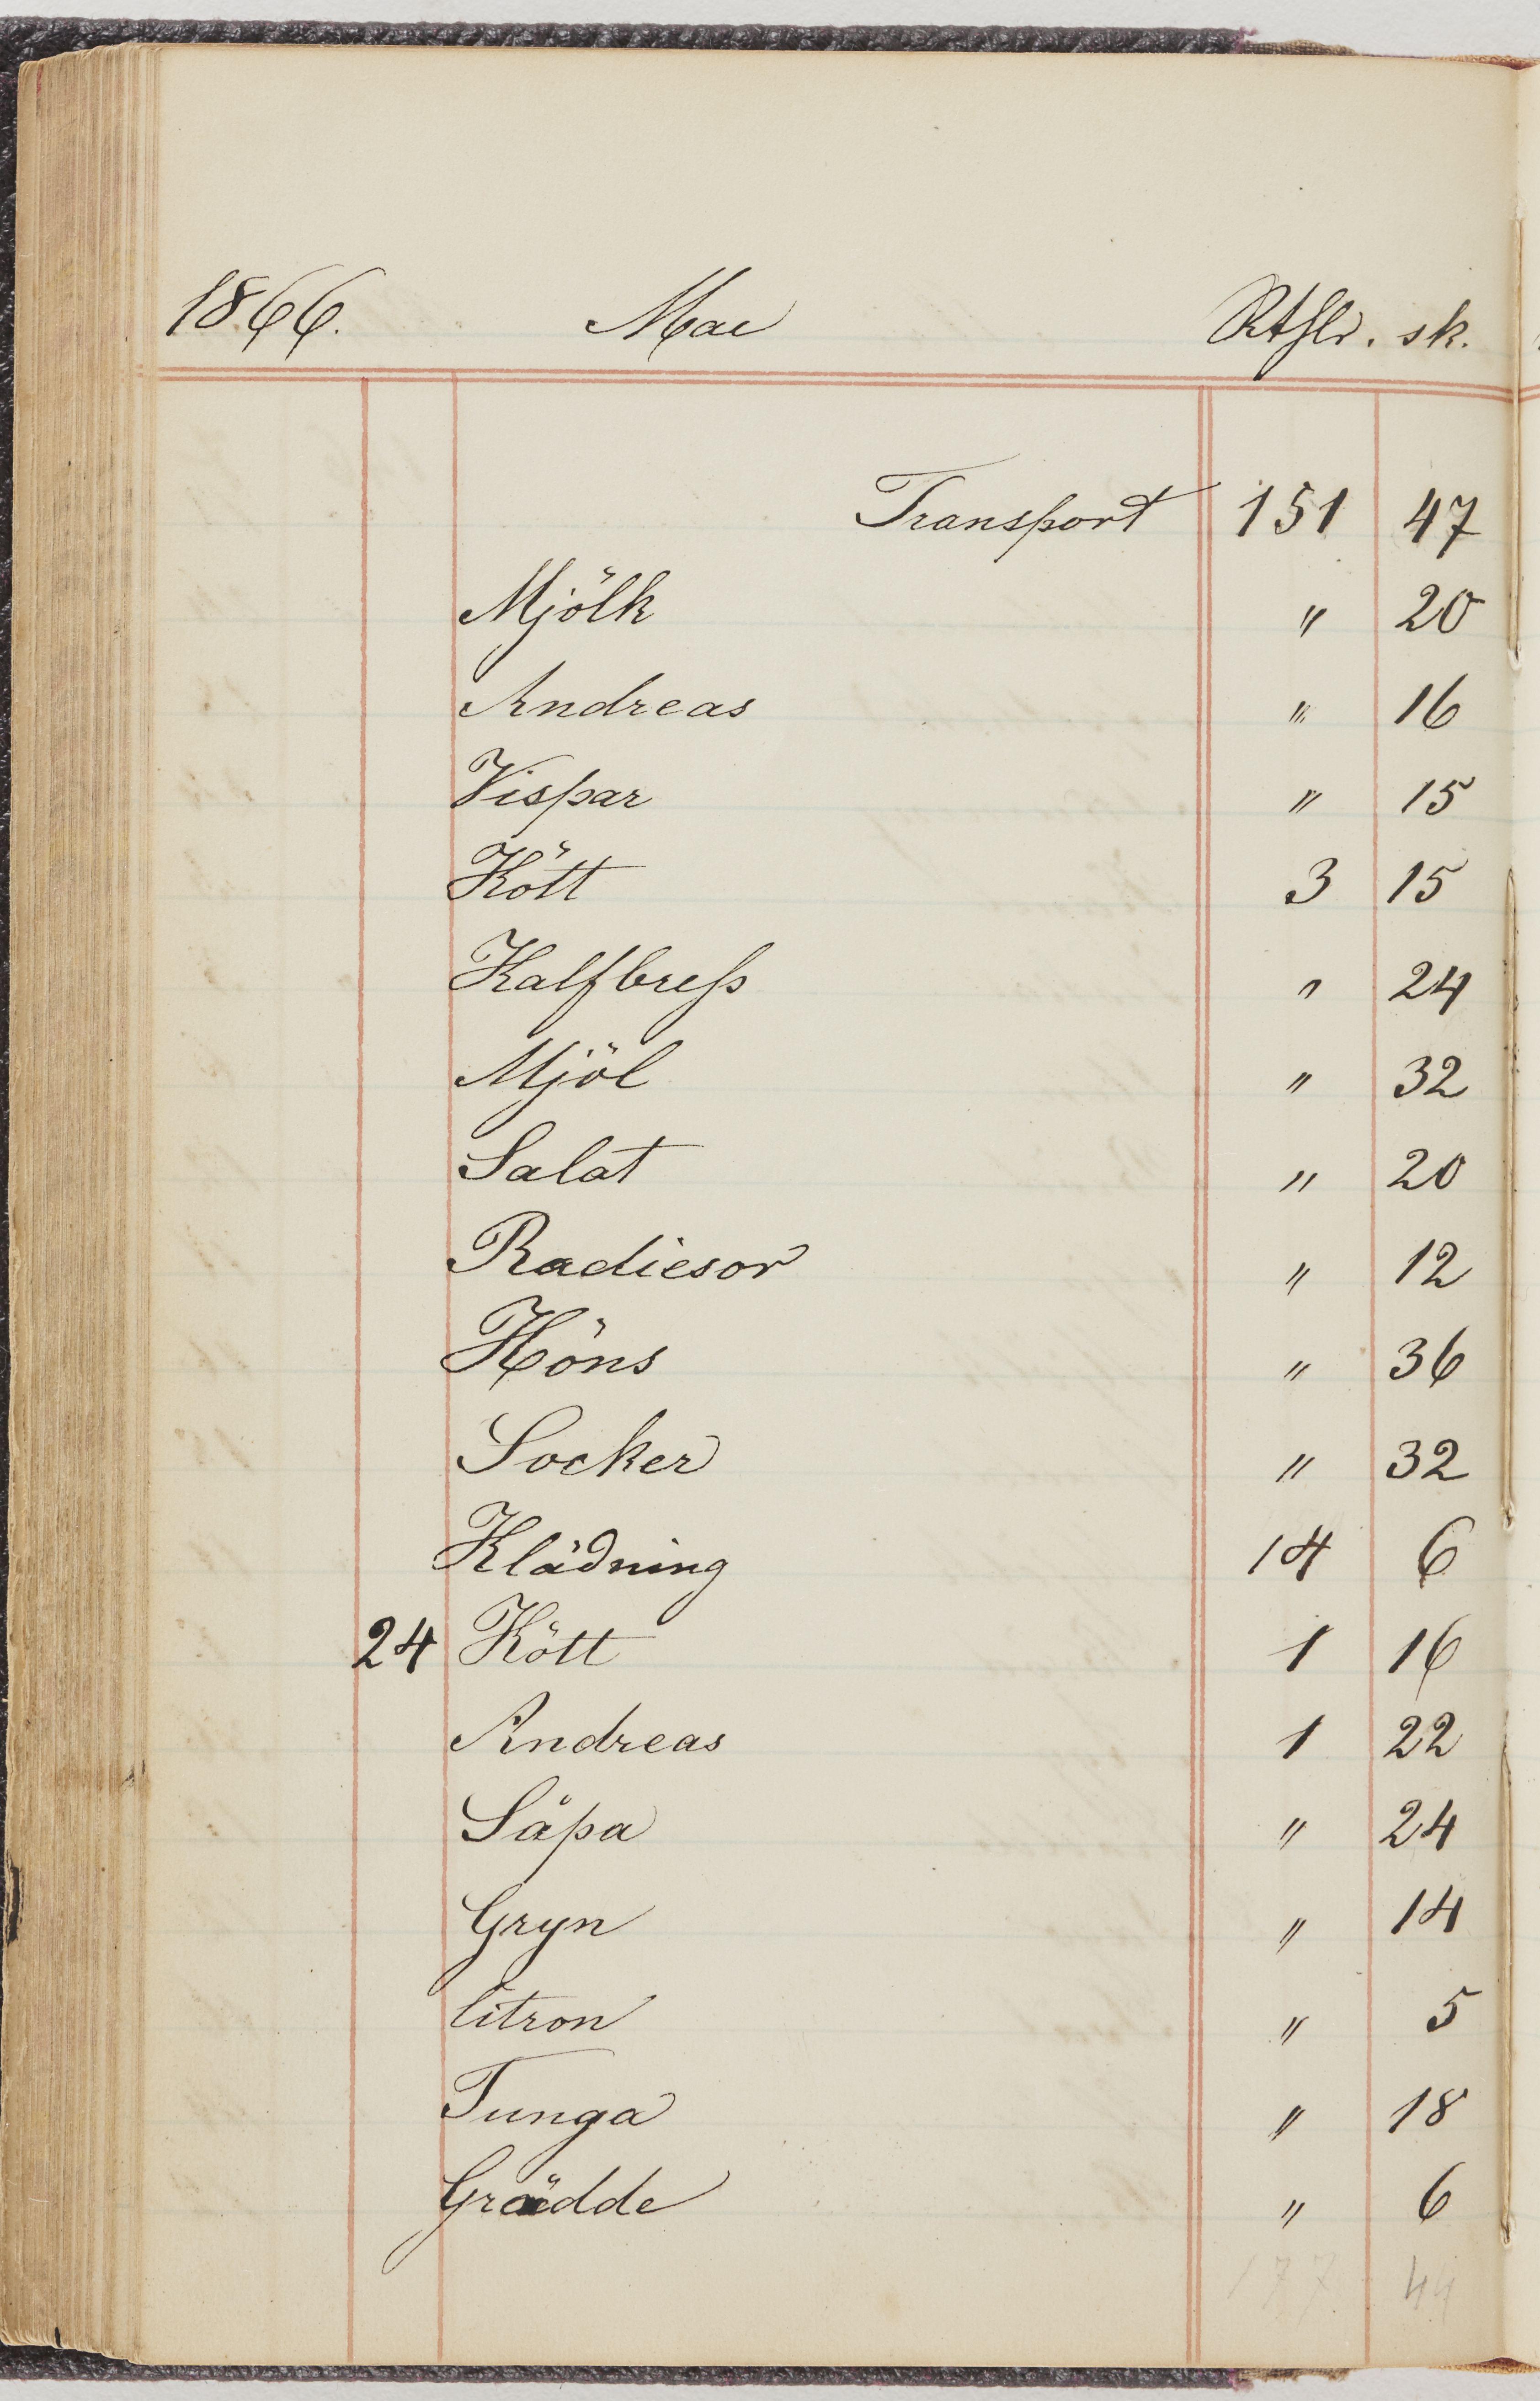 1866. Mai Rthlr. sk.
Transport 151 47
Mjölk " 20
Andreas " 16
Vispar " 15
Kött 3 15
Kalfbress " 24
Mjöl " 32
Salat " 20
Radiesor " 12
Höns " 36
Socker " 32
Klädning 14 6
24 Kött 1 16
Andreas 1 22
Såpa " 24
Gryn " 14
Citron " 5
Tunga " 18
Grädde " 6
177 44